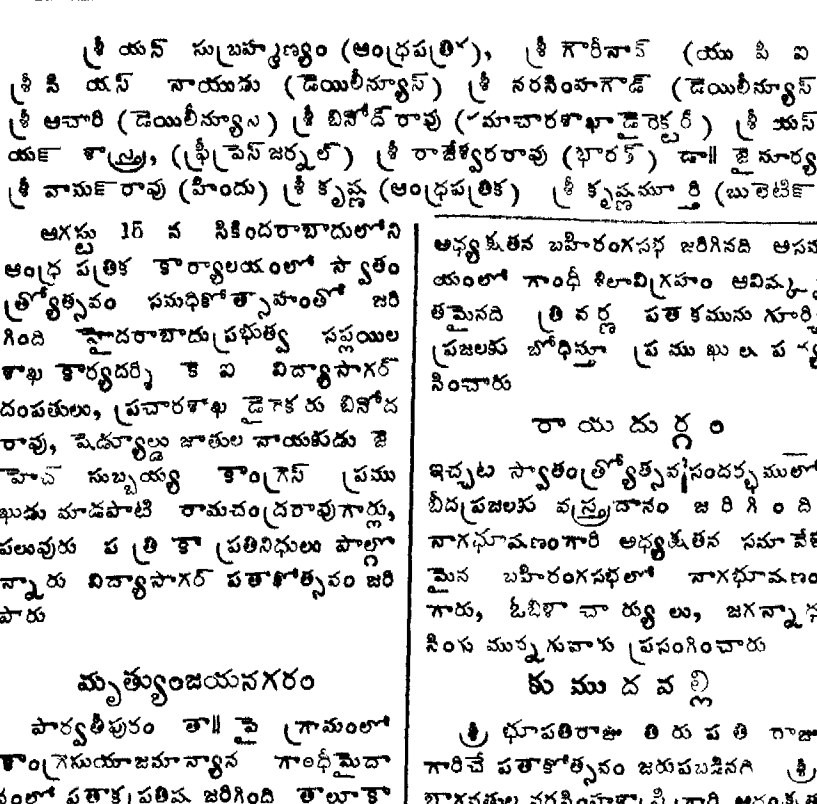 శ్రీ యస్ సుబ్రహ్మణ్యం (ఆంధ్రపత్రిక), శ్రీ గోపీనాథ్ (యు పి ఐ
శ్రీ సి యస్ నాయుడు (డెయిలీన్యూస్) శ్రీ నరసింహగౌడ్ (డెయిలీన్యూస్
శ్రీ ఆచారి (డెయిలీన్యూస్) శ్రీ బినోద్ రావు (సమాచారశాఖా డైరెక్టర్) శ్రీ యస్
యన్ శాస్త్రి, (ఫ్రీప్రెస్ జర్నల్) శ్రీ రాజేశ్వరరావు (భారత్) డా॥ జై సూర్య
శ్రీ వామన్ రావు (హిందు) శ్రీ కృష్ణ (ఆంధ్రపత్రిక) శ్రీ కృష్ణమూర్తి (బులెటిన్
ఆగస్టు 15 న సికిందరాబాదులోని
ఆంధ్ర పత్రిక కార్యాలయంలో స్వాతం
త్ర్యోత్సవం సమధికోత్సాహంతో జరి
గింది హైదరాబాదు ప్రభుత్వ సప్లయిల
శాఖ కార్యదర్శి కె ఐ విద్యాసాగర్
దంపతులు, ప్రచారశాఖ డైరెక్టరు బినోద
రావు, షెడ్యూల్డు జాతుల నాయకుడు జె
హెచ్ సుబ్బయ్య కాంగ్రెస్ ప్రము
ఖుడు మాడపాటి రామచంద్రరావుగార్లు,
పలువురు పత్రికా ప్రతినిధులు పాల్గొ
న్నారు విద్యాసాగర్ పతాకోత్సవం జరి
పారు
మృత్యుంజయనగరం
పార్వతీపురం తా॥ పై గ్రామంలో
కాంగ్రెసుయాజమాన్యాన గాంధీమైదా
నంలో పతాక ప్రతిష్ఠ జరిగింది తాలూకా
అధ్యక్షతన బహిరంగసభ జరిగినది ఆసమ
యంలో గాంధీ శిలావిగ్రహం ఆవిష్కృ
తమైనది త్రివర్ణ పతాకమును గూర్చి
ప్రజలకు బోధిస్తూ ప్రముఖులుపన్య
సించారు
రాయదుర్గం
ఇచ్చట స్వాతంత్ర్యోత్సవ సందర్భములో
బీదప్రజలకు వస్త్రదానం జరిగింది
నాగభూషణంగారి అధ్యక్షతన సమావేశ
మైన బహిరంగసభలో నాగభూషణం
గారు, ఓబిళాచార్యులు, జగన్నాధ
సింగు మున్నగువారు ప్రసంగించారు
కుముదవల్లి
శ్రీ భూపతిరాజు తిరుపతి రాజు
గారిచే పతాకోత్సవం జరుపబడినది శ్రీ
భాగవతుల నరసింహశాస్త్రిగారి అధ్యక్షత